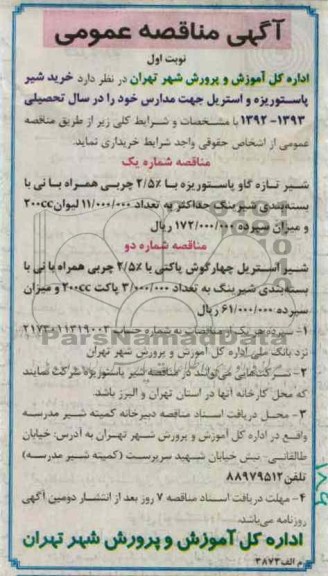 آگهی مناقصه عمومی
نوبت اول
اداره کل آموزش و پرورش شهر تهران در نظر دارد خرید شیر
پاستوریزه و استریل جهت مدارس خود را در سال تحصیلی
۱۳۹۳-۱۳۹۲ با مشخصات و شرایط کلی زیر از طریق مناقصه
عمومی از اشخاص حقوقی واجد شرایط خریداری نماید.
مناقصه شماره یک
شیر تازه گاو پاستوریزه با ۲/۵٪ چربی همراه با نی با
بسته‌بندی شیرینگ حداکثر به تعداد ۱۱/۰۰۰/۰۰۰ لیوان ۲۰۰cc
و میزان سپرده ۱۷۲/۰۰۰/۰۰۰ ریال
مناقصه شماره دو
شیر استریل چهارگوش پاکتی با ۲/۵٪ چربی همراه با نی با
بسته‌بندی شیرینگ به تعداد ۳/۰۰۰/۰۰۰ پاکت ۲۰۰cc و میزان
سپرده ۶۱/۰۰۰/۰۰۰ ریال
۱- سپرده هر یک از مناقصات به شماره حساب
نزد بانک ملی اداره کل آموزش و پرورش شهر تهران
۲- شرکت‌هایی می‌توانند در مناقصه شیر پاستوریزه شرکت نمایند
که محل کارخانه آنها در استان تهران و البرز باشد.
۳- محل دریافت اسناد مناقصه دبیرخانه کمیته شیر مدرسه
واقع در اداره کل آموزش و پرورش شهر تهران به آدرس: خیابان
طالقانی- نبش خیابان شهید سرپرست (کمیته شیر مدرسه)
تلفن ۸۸۹۷۹۵۱۲
۴- مهلت دریافت اسناد مناقصه ۷ روز بعد از انتشار دومین آگهی
روزنامه می‌باشد.
اداره کل آموزش و پرورش شهر تهران
م الف ۳۸۷۳
ParsNamadData